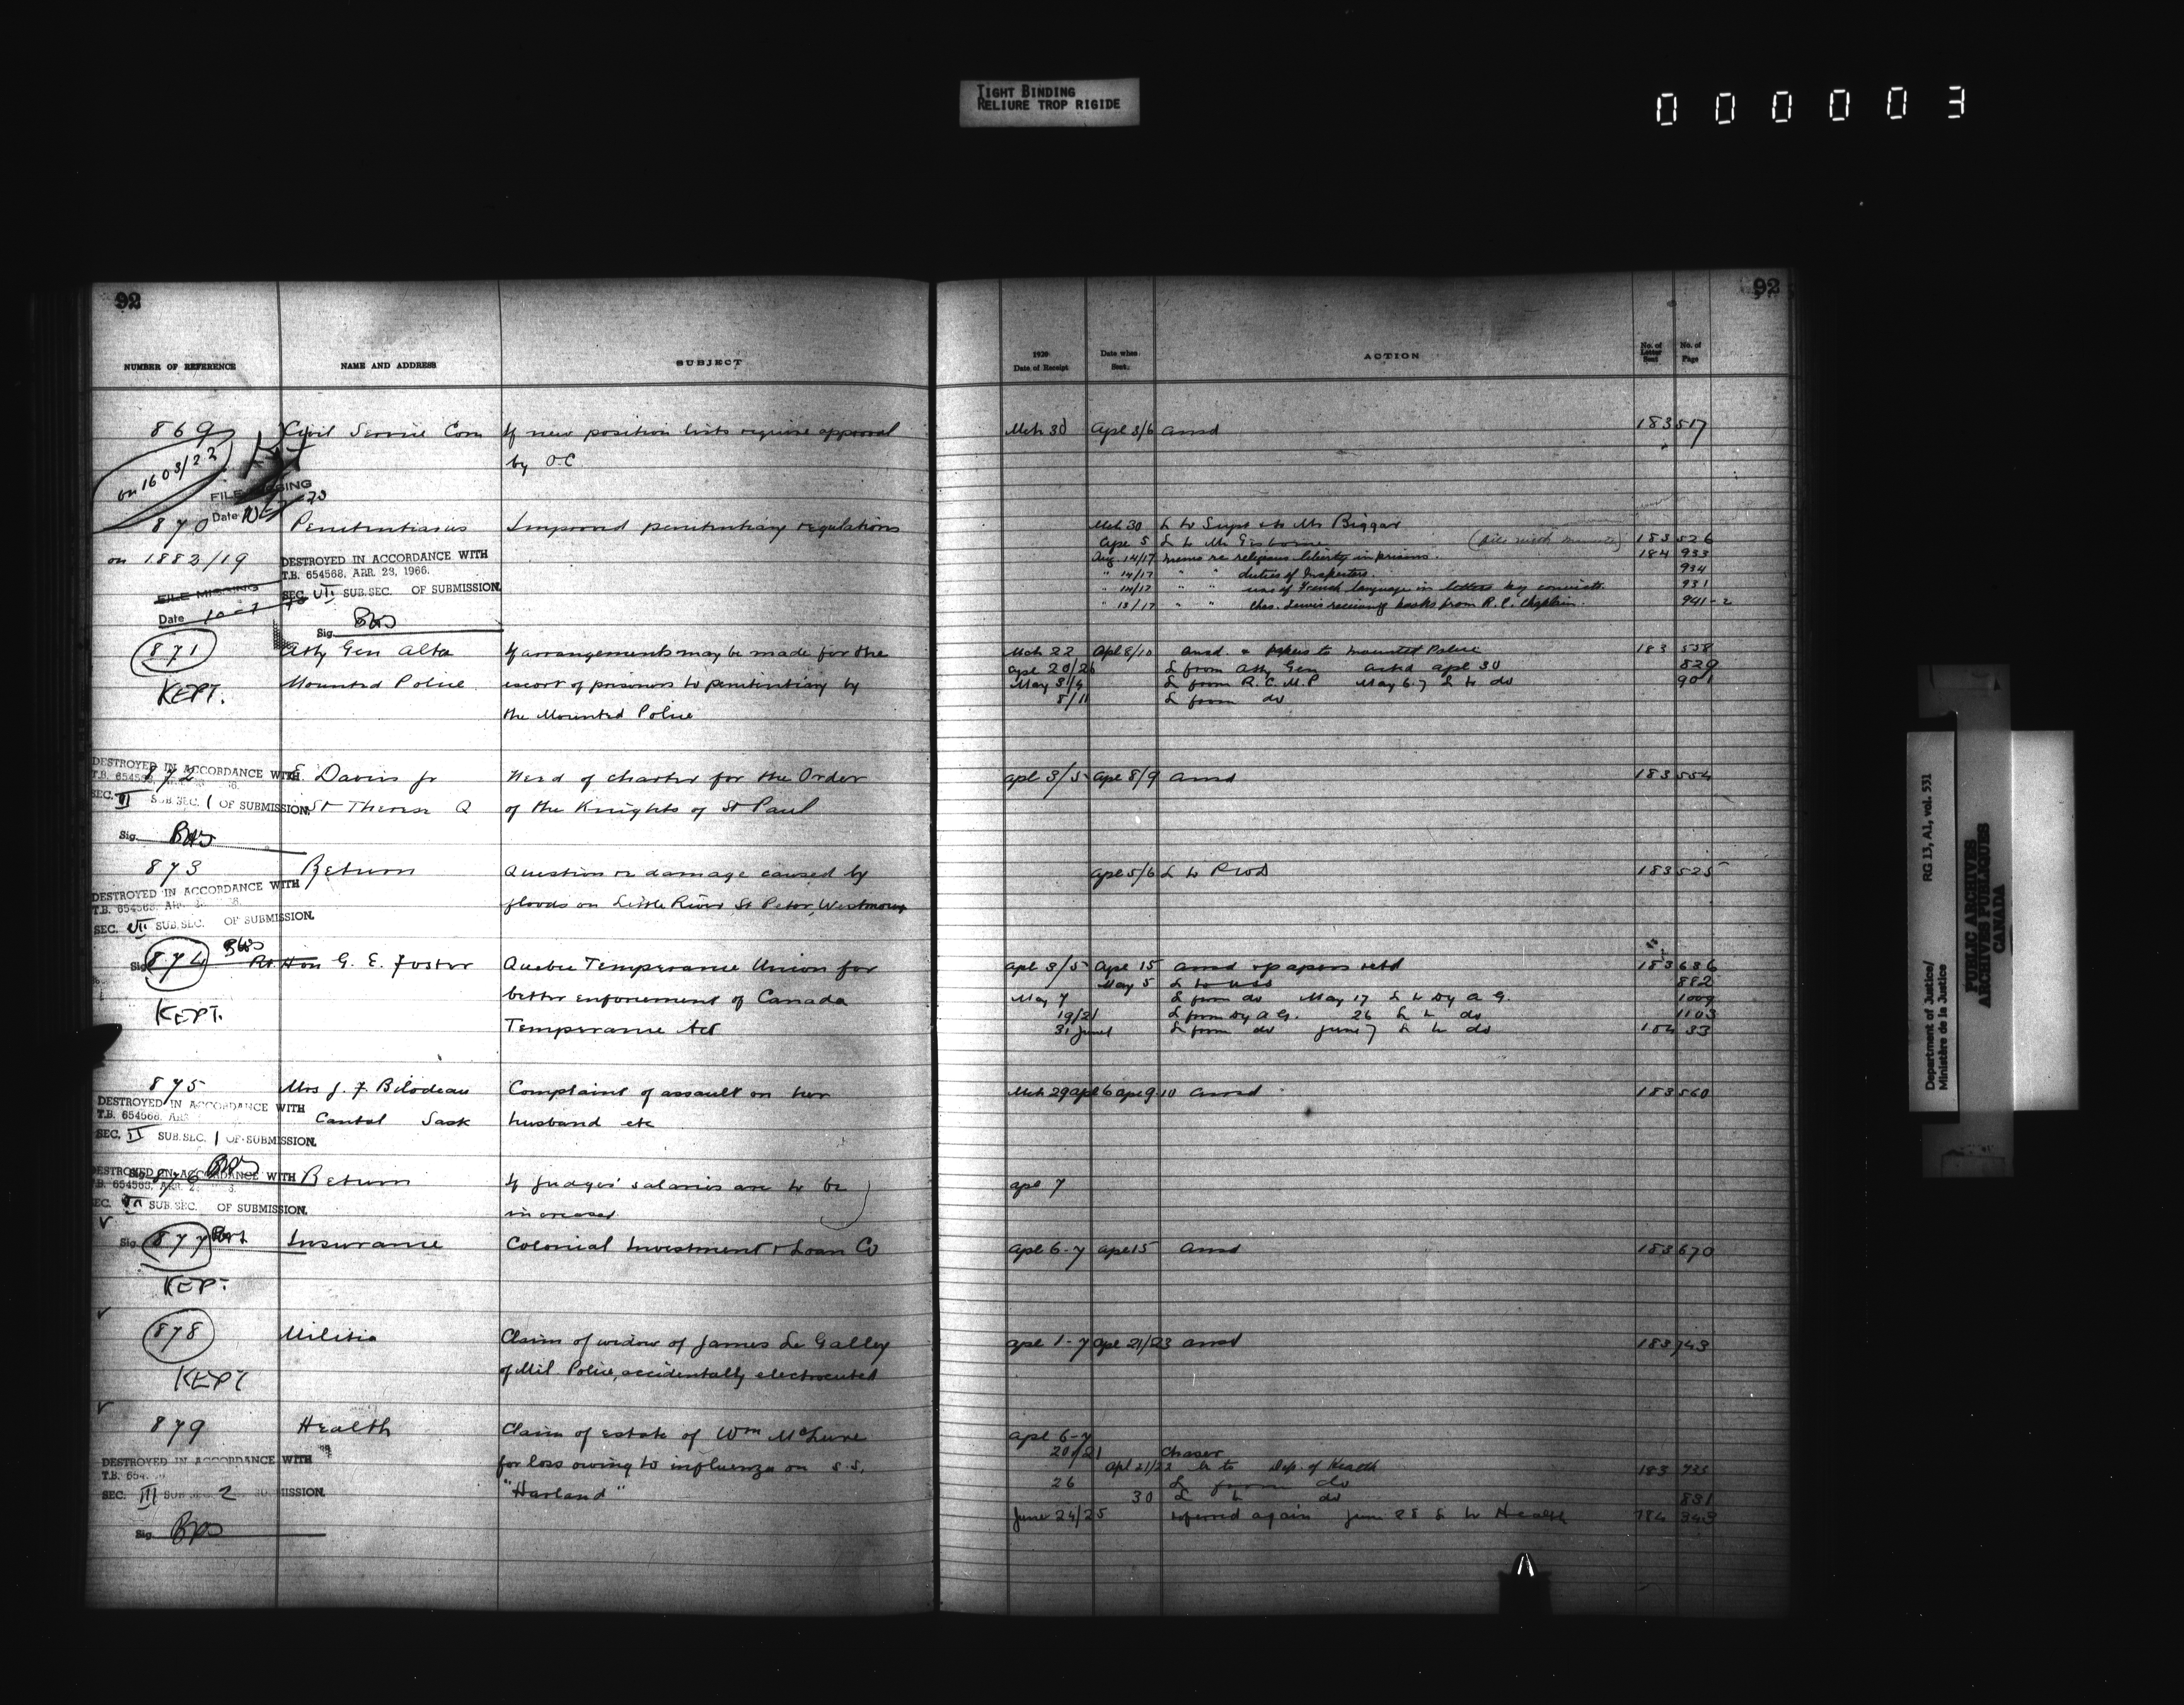 TIGHT BINDING
RELIURE TROP RIGIDE
000003
92
92
NUMBER OF REFERENCE NAME AND ADDRESS SUBJECT
1920 Date of Receipt Date when Sent. ACTION No. of Letter Sent No. of Page
869 Civil Service Com If new position lists require approval Mch 30 Apl 3/6 ansd 183 517
by O.C.
on 1603/22
FILE MISSING
Date
870 Penitentiaries Improved penitentiary regulations Mch 30 L to Supt & to Mr Biggar
Apl 5 L to Mr Gisborne 183 526
on 1882/19 DESTROYED IN ACCORDANCE WITH Aug 14/17 memo re religious liberty in prisons. 184 933
T.B. 654568, APR. 23, 1966. " 14/17 " " duties of Inspectors. 934
SEC. VII SUB.SEC. OF SUBMISSION. " 14/17 " " use of French language in letters by convicts. 931
FILE MISSING " 13/17 " " Chas. Lewis receiving books from R.C. Chaplain. 941-2
Date
Sig.
871 Atty Gen Alta If arrangements may be made for the Mch 22 Apl 8/10 ansd & papers to Mounted Police 183 558
Apl 20/26 L from Atty Gen ackd Apl 30 829
KEPT. Mounted Police escort of prisoners to penitentiary by May 3/4 L from R.C.M.P May 6-7 L to do 901
8/11 L from do
the Mounted Police
DESTROYED IN ACCORDANCE WITH
872 E Davis Jr Need of charter for the Order Apl 3/5 Apl 8/9 ansd 183 554
T.B. 654568
SEC. VI SUB.SEC. 1 OF SUBMISSION. St Therese Q of the Knights of St Paul
Sig.
873 Return Question re damage caused by Apl 5/6 L to PWD 183 525
DESTROYED IN ACCORDANCE WITH
T.B. 654568, APR. floods on Little River St Peter, Westmount
SEC. VII SUB.SEC. OF SUBMISSION.
Sig.
874 Rt Hon G. E. Foster Quebec Temperance Union for Apl 3/5 Apl 15 ansd & papers retd 183 636
May 5 L to 882
KEPT. better enforcement of Canada May 7 L from do May 17 L to Dy A G. 1009
19/21 L from Dy A G. 26 L to do 1103
Temperance Act 31 June 1 L from do June 7 L to do 184 33
875 Mrs J. F Bilodeau Complaint of assault on her Mch 29 Apl 6 Apl 9-10 ansd 183 560
DESTROYED IN ACCORDANCE WITH
T.B. 654568, APR. Cantal Sask husband etc
SEC. II SUB.SEC. 1 OF SUBMISSION.
Sig.
DESTROYED IN ACCORDANCE WITH
876 Return If Judges' salaries are to be Apl 7
T.B. 654568, APR. 2
SEC. VII SUB.SEC. OF SUBMISSION. increased
Sig.
877 Insurance Colonial Investment & Loan Co Apl 6-7 Apl 15 ansd 183 670
KEPT.
878 Militia Claim of widow of James Le Galley Apl 1-7 Apl 21/23 ansd 183 743
KEPT of Mil. Police, accidentally electrocuted
879 Health Claim of estate of Wm McLure Apl 6-7
20/21 Chaser
DESTROYED IN ACCORDANCE WITH for loss owing to influenza on S.S. Apl 21/22 L to Dep. of Health 183 733
T.B. 654
SEC. III SUB.SEC. 2 SUBMISSION. "Harland" 26 L from do
30 L to do 831
June 24/25 referred again June 28 L to Health 184 343
Sig.
Department of Justice/ RG 13, A1, vol. 531
Ministère de la Justice
PUBLIC ARCHIVES
ARCHIVES PUBLIQUES
CANADA